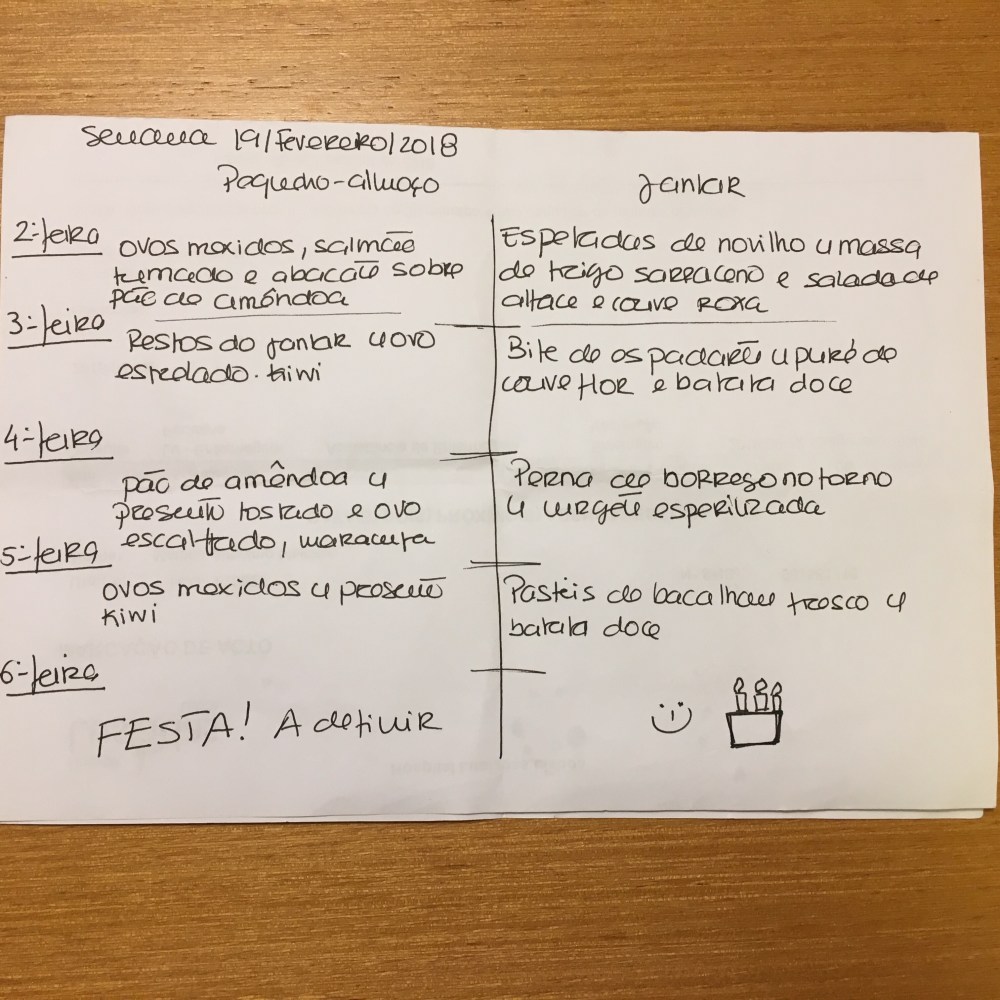 Semana 19/Fevereiro/2018
Pequeno-almoço
Jantar
2ª-feira
ovos mexidos, salmão
fumado e abacate sobre
pão de amêndoa
Espetadas de novilho c/ massa
de trigo sarraceno e salada de
alface e couve roxa
3ª-feira
Restos do jantar c/ ovo
estrelado. kiwi
Bife de espadarte c/ puré de
couve flor e batata doce
4ª-feira
pão de amêndoa c/
presunto tostado e ovo
escalfado, maracuja
Perna de borrego no forno
c/ curgete espirilizada
5ª-feira
ovos mexidos c/ presunto
kiwi
Pastéis de bacalhau fresco c/
batata doce
6ª-feira
FESTA! A definir